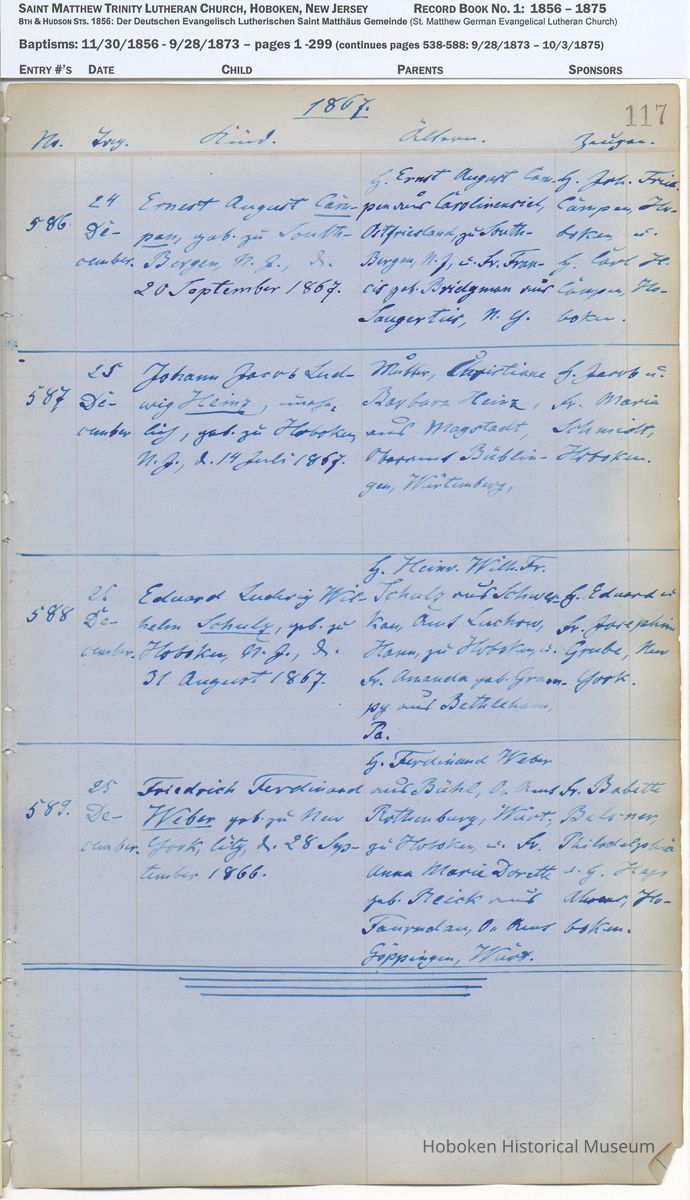 SAINT MATTHEW TRINITY LUTHERAN CHURCH, HOBOKEN, NEW JERSEY RECORD BOOK NO. 1: 1856 – 1875
8TH & HUDSON STS. 1856: Der Deutschen Evangelisch Lutherischen Saint Matthäus Gemeinde (St. Matthew German Evangelical Lutheran Church)
Baptisms: 11/30/1856 - 9/28/1873 – pages 1 -299 (continues pages 538-588: 9/28/1873 – 10/3/1875)
ENTRY #'S DATE CHILD PARENTS SPONSORS
1867.
117
No. Tag. Kind. Ältern. Zeugen.
586.
24
De-
cember.
Ernest August Cäm-
pen, geb. zu South-
Bergen, N. J., d.
20 September 1867.
H. Ernst August Cäm-
pen aus Carolinensiel,
Ostfriesland, zu South-
Bergen, N. J., u. Fr. Fran-
cis geb. Bridgman aus
Saugerties, N. Y.
H. Joh. Fried.
Cämpen, Ho-
boken, u.
H. Carl H.
Cämpen, Ho-
boken.
587
25
De-
cember
Johann Jacob Lud-
wig Heinz, unehe-
lich, geb. zu Hoboken,
N. J., d. 14 Juli 1867.
Mutter, Christiane
Barbara Heinz,
aus Magstadt,
Oberamt Böblin-
gen, Würtemberg,
H. Jacob u.
Fr. Maria
Schmidt,
Hoboken.
588
25
De-
cember.
Eduard Ludwig Wil-
helm Schulz, geb. zu
Hoboken, N. J., d.
31 August 1867.
H. Heinr. Wilh. Fr.
Schulz aus
Amt Luchow,
Hann., zu Hoboken, u.
Fr. Amanda geb.
aus Bethlehem,
Pa.
H. Eduard u
Fr. Josephin
Grube, New
York.
589.
25
De-
cember.
Friedrich Ferdinand
Weber geb. zu New
York, City, d. 28 Sep-
tember 1866.
H. Ferdinand Weber
aus Bühl, O. Amt
Rottenburg, Würt.,
zu Hoboken, u. Fr.
Anna Maria Dorette
geb. Reick aus
Faurndau, O. Amt
Göppingen, Würt.
Fr. Babette
Philadelphia
u. H.
Ahrens, Ho-
boken.
Hoboken Historical Museum